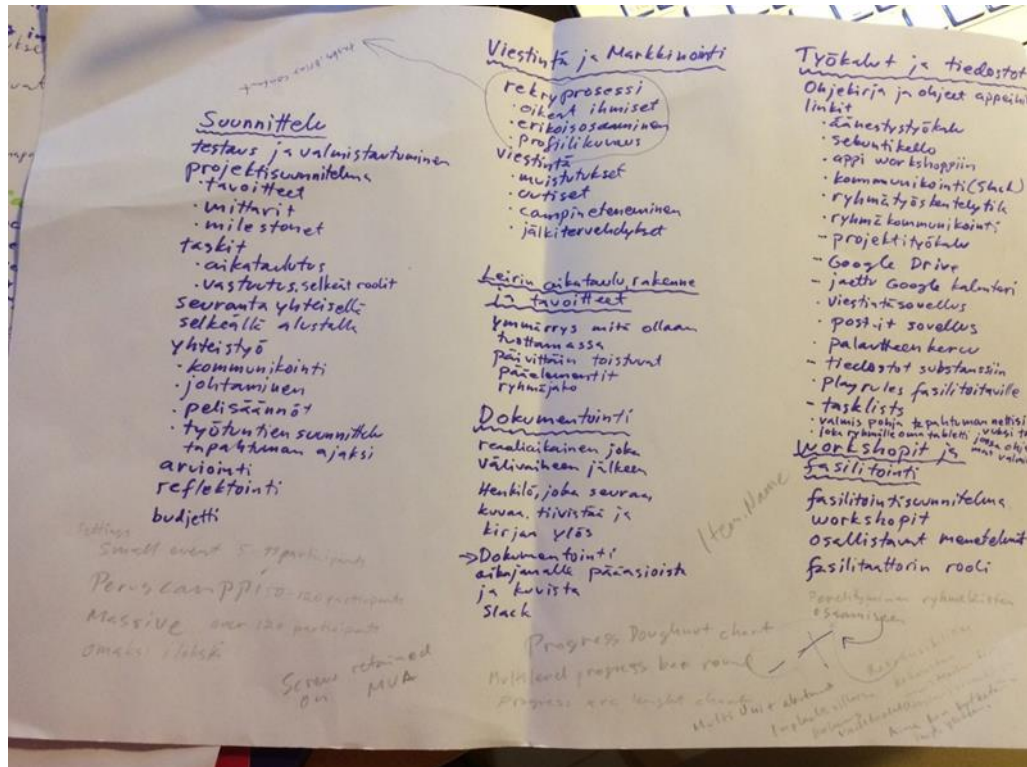 Suunnittelu
testaus ja valmistautuminen
projektisuunnitelma
· tavoitteet
· mittarit
· milestonet
taskit
· aikataulutus
· vastuutus, selkeät roolit
seuranta yhteisellä
selkeällä alustalla
yhteistyö
· kommunikointi
· johtaminen
· pelisäännöt
· työtuntien suunnittelu
tapahtuman ajaksi
arviointi
reflektointi
budjetti
Settings
Small event 5- participants
Peruscamppi participants
Massive over 120 participants
Screw retained
on MVA
Viestintä ja Markkinointi
rekryprosessi
· oikeat ihmiset
· erikoisosaaminen
· profiilikuvaus
viestintä
· muistutukset
· uutiset
· campin eteneminen
· jälkitervehdykset
Leirin aikataulu, rakenne
ja tavoitteet
ymmärrys mitä ollaan
tuottamassa
päivittäin toistuvat
pääelementit
ryhmäjako
Dokumentointi
reaaliaikainen joka
välivaiheen jälkeen
Henkilö, joka seuraa,
kuvaa, tiivistää ja
kirjaa ylös
→Dokumentointi
aikajanalle pääasioista
ja kuvista
Slack
Item.Name
Progress Doughnut chart
Multilevel progress bar round
Progress chart
Työkalut ja tiedostot
Ohjekirja ja ohjeet
linkit
· äänestystyökalu
· sekuntikello
· appi workshoppiin
· kommunikointi (Slack)
· ryhmätyöskentelytila
· ryhmäkommunikointi
- projektityökalu
- Google Drive
- jaettu Google kalenteri
· viestintäsovellus
· post-it sovellus
· palautteen keruu
- tiedostot substanssiin
· playrules fasilitoitaville
- tasklists
· valmis pohja tapahtuman
· joka ryhmälle oma tabletti jossa
workshopit ja
fasilitointi
fasilitointisuunnitelma
workshopit
osallistavat menetelmät
fasilitaattorin rooli
osaamiseen